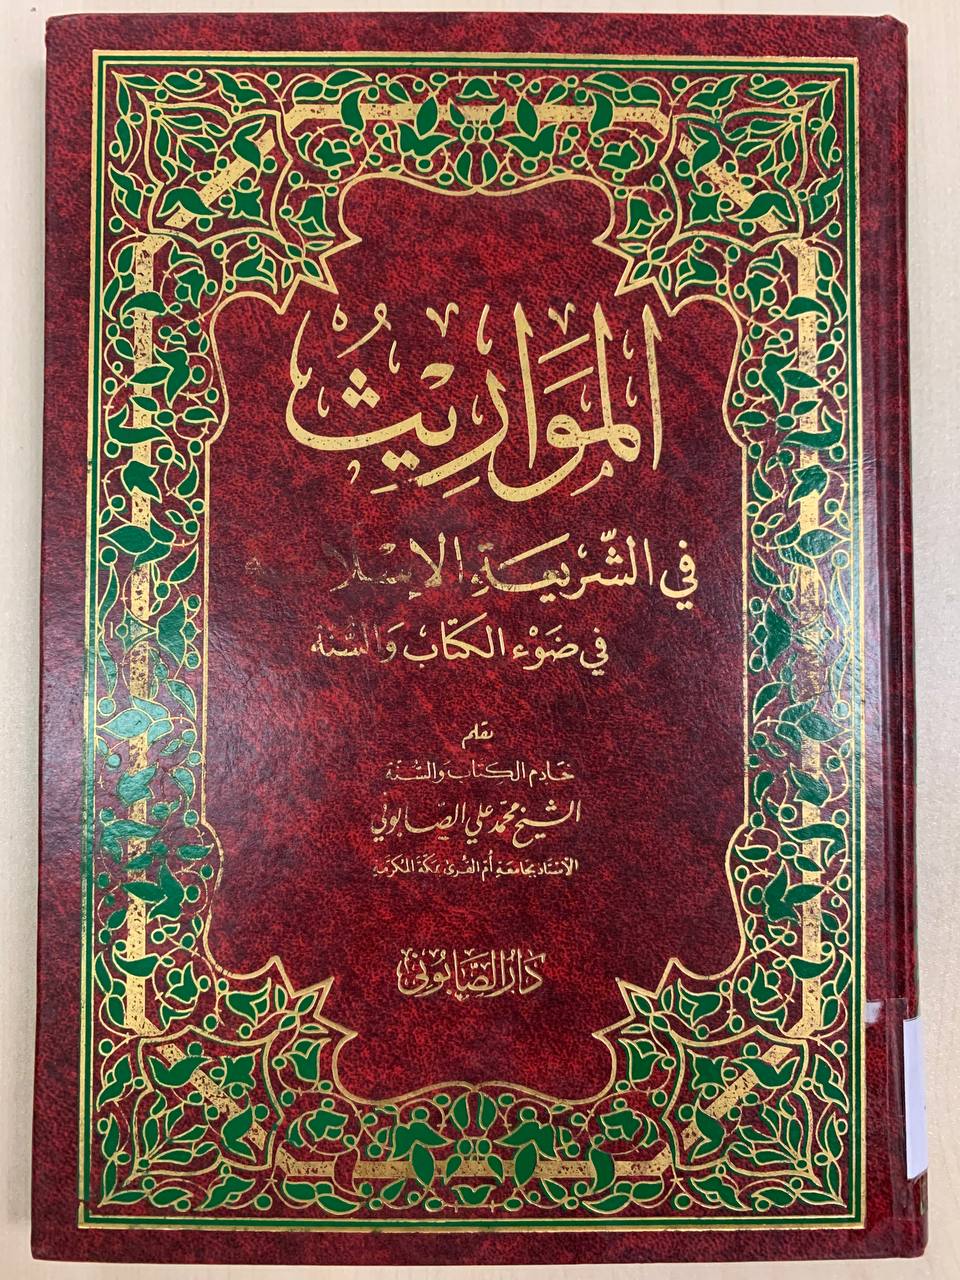 المَوَارِيثُ
في الشَّرِيعَةِ الإِسْلامية
في ضَوْءِ الكتَابِ وَالسُّنة
بقلم
خَادِم الكتَاب وَالسُّنَّة
الشيخ محمّد علي الصَّابوني
الأستاذ بجامعة أم القرى بمكة المكرمة
دَارُ الصَّابُوني